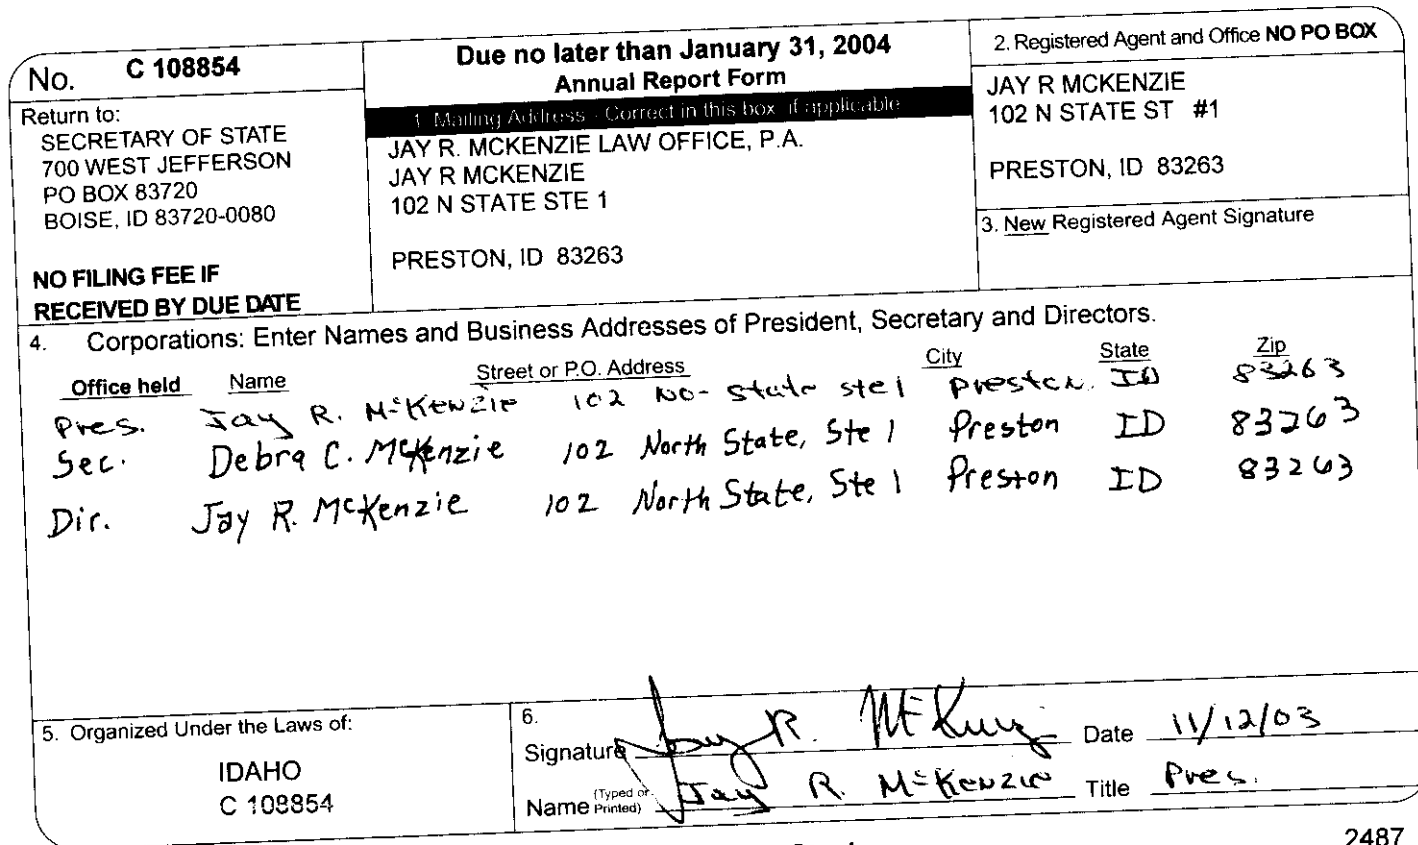 No. C 108854
Return to:
SECRETARY OF STATE
700 WEST JEFFERSON
PO BOX 83720
BOISE, ID 83720-0080
NO FILING FEE IF
RECEIVED BY DUE DATE
Due no later than January 31, 2004
Annual Report Form
1. Mailing Address - Correct in this box, if applicable
JAY R. MCKENZIE LAW OFFICE, P.A.
JAY R MCKENZIE
102 N STATE STE 1
PRESTON, ID 83263
2. Registered Agent and Office NO PO BOX
JAY R MCKENZIE
102 N STATE ST #1
PRESTON, ID 83263
3. New Registered Agent Signature
4. Corporations: Enter Names and Business Addresses of President, Secretary and Directors.
Office held Name Street or P.O. Address City State Zip
Pres. Jay R. McKenzie 102 No- State ste 1 Preston. ID 83263
Sec. Debra C. McKenzie 102 North State, Ste 1 Preston ID 83263
Dir. Jay R. McKenzie 102 North State, Ste 1 Preston ID 83263
5. Organized Under the Laws of:
IDAHO
C 108854
6.
Signature Jay R. McKenzie Date 11/12/03
Name (Typed or Printed) Jay R. McKenzie Title Pres.
2487